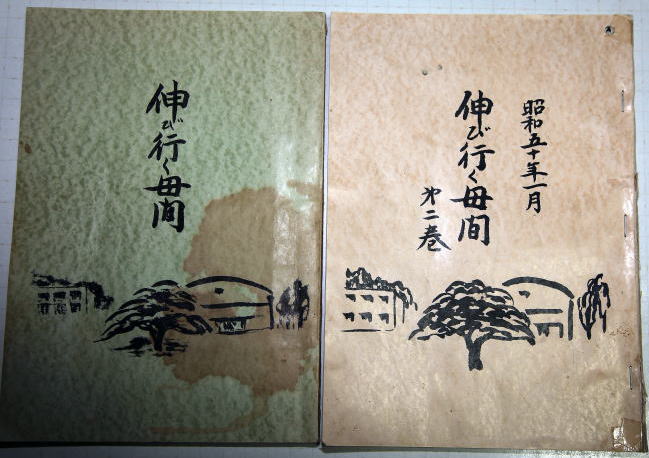 伸び行く母間
昭和五十年一月
伸び行く母間
第二巻